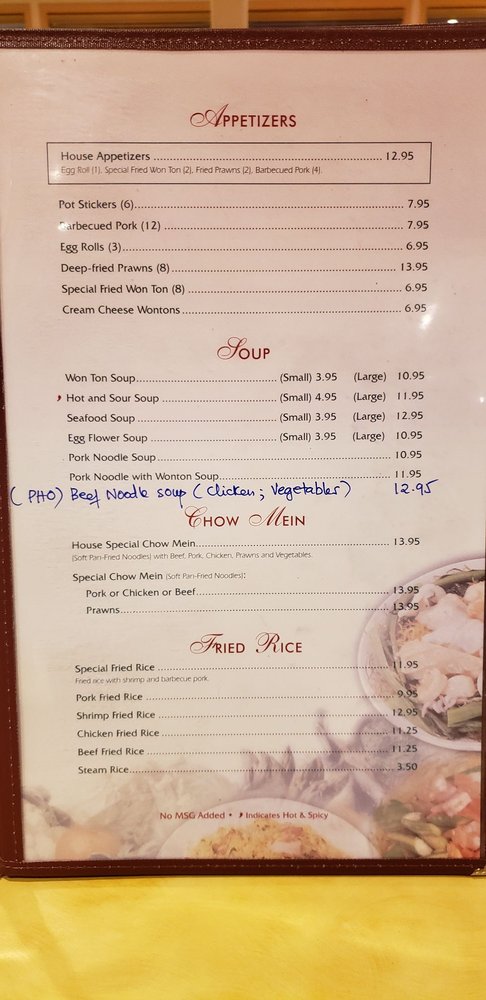 APPETIZERS
House Appetizers 12.95
Egg Roll (1), Special Fried Won Ton (2), Fried Prawns (2), Barbecued Pork (4).
Pot Stickers (6) 7.95
Barbecued Pork (12) 7.95
Egg Rolls (3) 6.95
Deep-fried Prawns (8) 13.95
Special Fried Won Ton (8) 6.95
Cream Cheese Wontons 6.95
SOUP
Won Ton Soup (Small) 3.95 (Large) 10.95
Hot and Sour Soup (Small) 4.95 (Large) 11.95
Seafood Soup (Small) 3.95 (Large) 12.95
Egg Flower Soup (Small) 3.95 (Large) 10.95
Pork Noodle Soup 10.95
Pork Noodle with Wonton Soup 11.95
(PHO) Beef Noodle soup (Chicken; Vegetables) 12.95
CHOW MEIN
House Special Chow Mein 13.95
(Soft Pan-Fried Noodles) with Beef, Pork, Chicken, Prawns and Vegetables.
Special Chow Mein (Soft Pan-Fried Noodles):
Pork or Chicken or Beef 13.95
Prawns 13.95
FRIED RICE
Special Fried Rice 11.95
Fried rice with shrimp and barbecue pork.
Pork Fried Rice 9.95
Shrimp Fried Rice 12.95
Chicken Fried Rice 11.25
Beef Fried Rice 11.25
Steam Rice 3.50
No MSG Added • Indicates Hot & Spicy